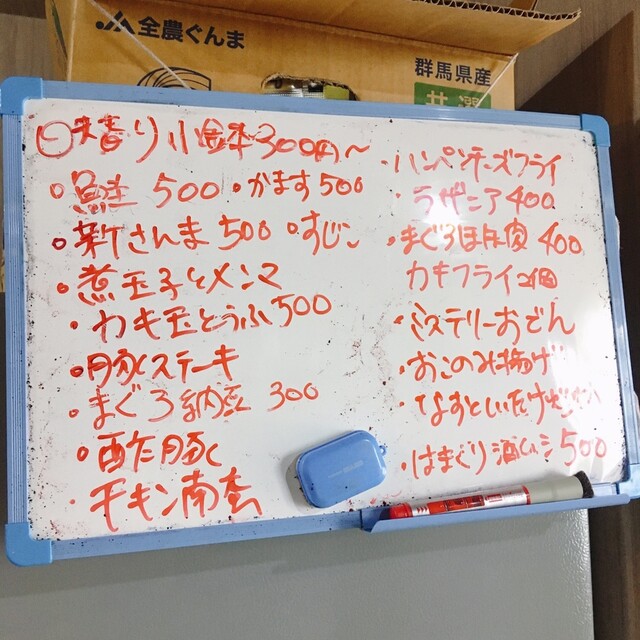 JA全農ぐんま
群馬県産
日替り小鉢300円〜
・鮭 500 ・かます500
・新さんま500 ・すじこ
・煮玉子とメンマ
・カキ玉とうふ500
・豚ステーキ
・まぐろ納豆 300
・酢豚
・チキン南蛮
・ハンペンチーズフライ
・ラザニア400
・まぐろほほ肉 400
カキフライ2個
・ミステリーおでん
・おこのみ揚げ
・なすと
・はまぐり酒ムシ500